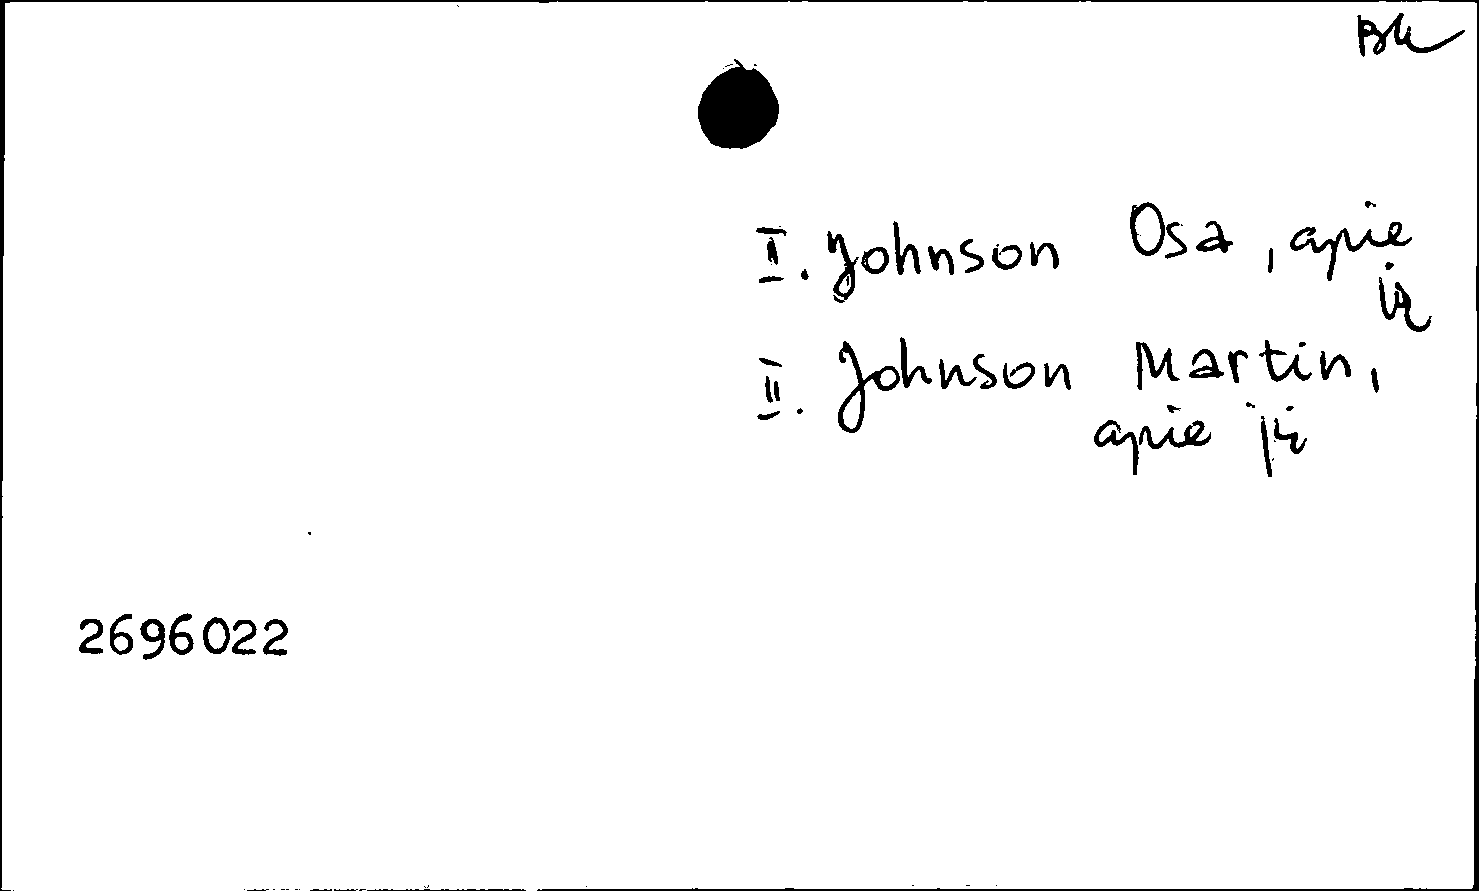 Bk
I. Johnson Osa, apie
ją
II. Johnson Martin,
apie jį
2696022